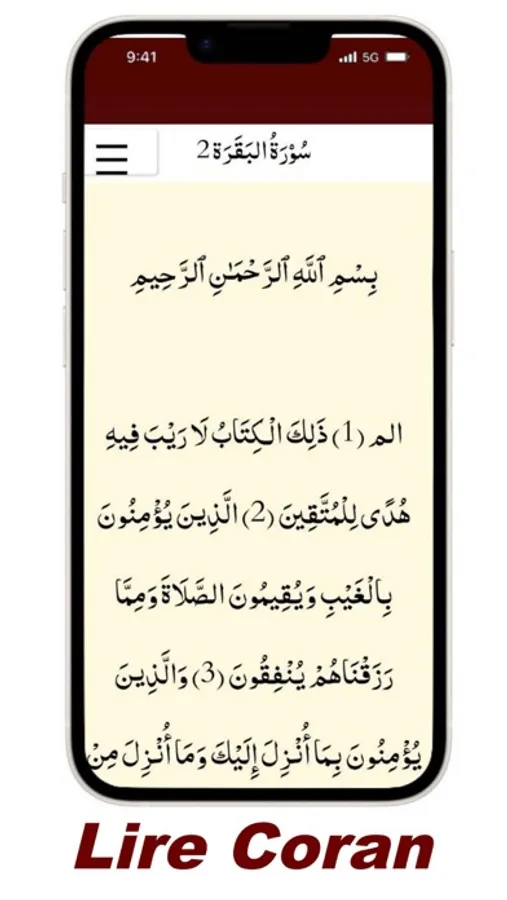 9:41 5G
سُوْرَةُ البَقَرَة 2
بِسْمِ ٱللَّهِ ٱلرَّحْمَٰنِ ٱلرَّحِيمِ
الم (1) ذَلِكَ الْكِتَابُ لَا رَيْبَ فِيهِ
هُدًى لِلْمُتَّقِينَ (2) الَّذِينَ يُؤْمِنُونَ
بِالْغَيْبِ وَيُقِيمُونَ الصَّلَاةَ وَمِمَّا
رَزَقْنَاهُمْ يُنْفِقُونَ (3) وَالَّذِينَ
يُؤْمِنُونَ بِمَا أُنْزِلَ إِلَيْكَ وَمَا أُنْزِلَ مِنْ
Lire Coran